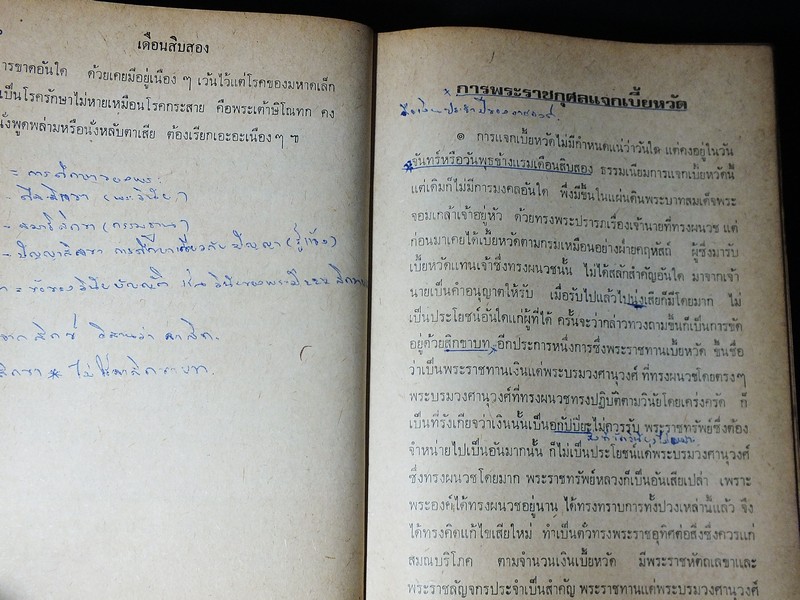 เดือนสิบสอง
ารขาดอันใด ด้วยเคยมีอยู่เนือง ๆ เว้นไว้แต่โรคของมหาดเล็ก
เป็นโรครักษาไม่หายเหมือนโรคกระสาย คือพระเต้าษิโณทก คง
นั่งพูดพล่ามหรือนั่งหลับตาเสีย ต้องเรียกเอะอะเนืองๆ ฯ
= การศึกษาของพระ
- ศีลสิกขา (พระวินัย)
- สมาธิสิกขา (กรรมฐาน)
- ปัญญาสิกขา การศึกษาเกี่ยวกับปัญญา (รู้แจ้ง)
= ข้อของวินัยบัญญัติ เช่น วินัยของพระมี
ไม่ใช่
การพระราชกุศลแจกเบี้ยหวัด
๏ การแจกเบี้ยหวัดไม่มีกำหนดแน่ว่าวันใด แต่คงอยู่ในวัน
จันทร์หรือวันพุธข้างแรมเดือนสิบสอง ธรรมเนียมการแจกเบี้ยหวัดนี้
แต่เดิมก็ไม่มีการมงคลอันใด พึ่งมีขึ้นในแผ่นดินพระบาทสมเด็จพระ
จอมเกล้าเจ้าอยู่หัว ด้วยทรงพระปรารภเรื่องเจ้านายที่ทรงผนวช แต่
ก่อนมาเคยได้เบี้ยหวัดตามกรมเหมือนอย่างฝ่ายคฤหัสถ์ ผู้ซึ่งมารับ
เบี้ยหวัดแทนเจ้าซึ่งทรงผนวชนั้น ไม่ได้สลักสำคัญอันใด มาจากเจ้า
นายเป็นคำอนุญาตให้รับ เมื่อรับไปแล้วไปนุ่งเสียก็มีโดยมาก ไม่
เป็นประโยชน์อันใดแก่ผู้ที่ได้ ครั้นจะว่ากล่าวทวงถามขึ้นก็เป็นการขัด
อยู่ด้วยสิกขาบท อีกประการหนึ่งการซึ่งพระราชทานเบี้ยหวัด ขึ้นชื่อ
ว่าเป็นพระราชทานเงินแด่พระบรมวงศานุวงศ์ ที่ทรงผนวชโดยตรงๆ
พระบรมวงศานุวงศ์ที่ทรงผนวชทรงปฏิบัติตามวินัยโดยเคร่งครัด ก็
เป็นที่รังเกียจว่าเงินนั้นเป็นอกัปปิยะไม่ควรรับ พระราชทรัพย์ซึ่งต้อง
จำหน่ายไปเป็นอันมากนั้น ก็ไม่เป็นประโยชน์แด่พระบรมวงศานุวงศ์
ซึ่งทรงผนวชโดยมาก พระราชทรัพย์หลวงก็เป็นอันเสียเปล่า เพราะ
พระองค์ได้ทรงผนวชอยู่นาน ได้ทรงทราบการทั้งปวงเหล่านี้แล้ว จึง
ได้ทรงคิดแก้ไขเสียใหม่ ทำเป็นตั๋วทรงพระราชอุทิศต่อสิ่งซึ่งควรแก่
สมณบริโภค ตามจำนวนเงินเบี้ยหวัด มีพระราชหัตถเลขาและ
พระราชลัญจกรประจำเป็นสำคัญ พระราชทานแด่พระบรมวงศานุวงศ์